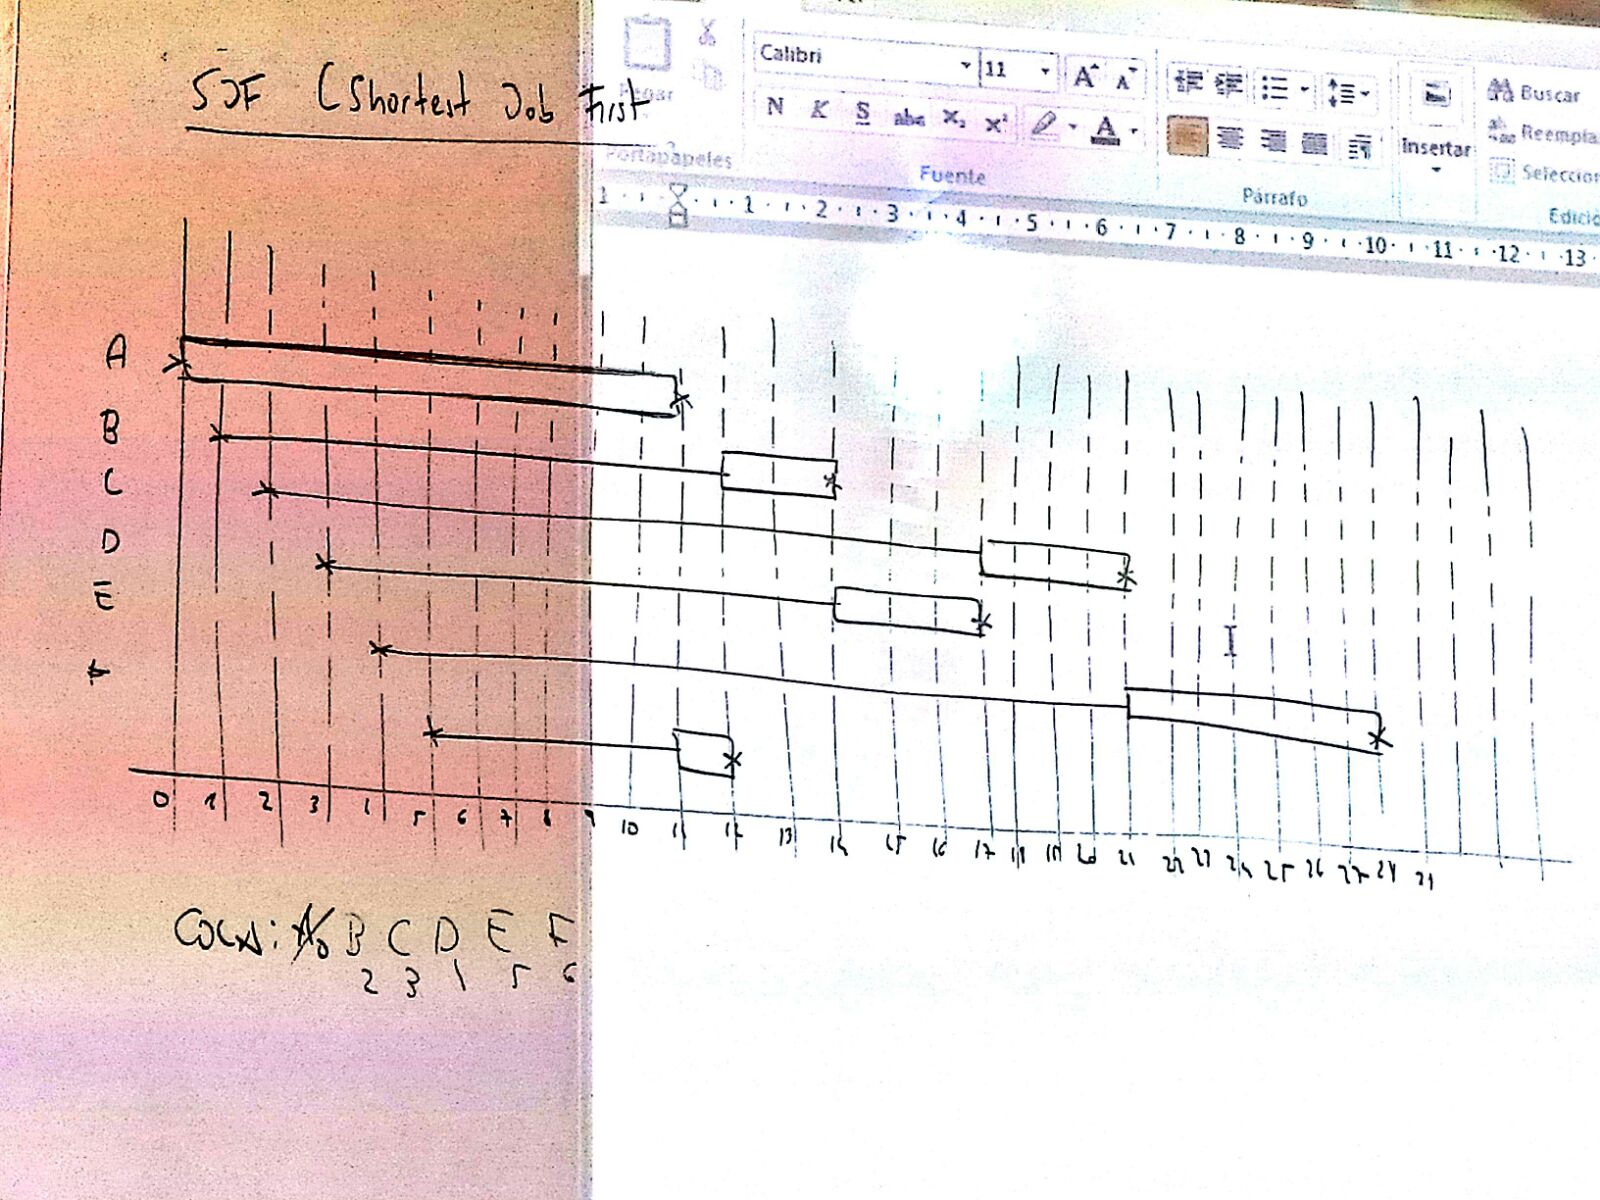 SJF (Shortest Job First
Pegar
Portapapeles
Calibri 11 A A
N K S abc X₂ X² A
Fuente
Párrafo
Insertar
Buscar
Reempla
Seleccion
Edició
1 1 2 3 4 5 6 7 8 9 10 11 12 13
A
B
C
D
E
0 1 2 3 5 6 7 8 9 10 11 12 13 14 15 16 17 18 19 20 21 22 23 24 25 26 27 28 29
B C D E F
2 3 1 5 6